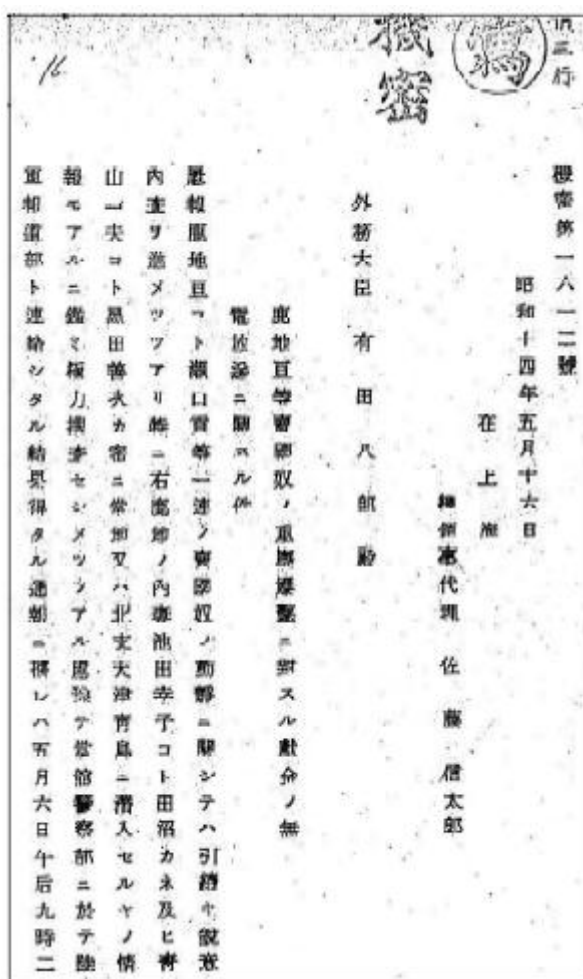 機密
機密第一六一二號
昭和十四年五月十六日
在上海
總領事代理 佐藤信太郎
外務大臣 有田八郎殿
鹿地亘等賣國奴ノ重慶爆擊ニ對スル獻金ノ無
電放送ニ關スル件
鹿地亘コト瀨口貢等一連ノ賣國奴ノ動靜ニ關シテハ引續キ鋭意
內査ヲ進メツツアリ 右鹿地ノ內妻池田幸子コト田沼カネ及ヒ靑
山一夫コト黑田善次カ密ニ當地又ハ北支天津靑島ニ潛入セルヤノ情
報モアルニ鑑ミ極力搜査セシメツツアル 當館警察部ニ於テ陸
軍報道部ト連絡シタル結果得タル 五月六日午后九時二